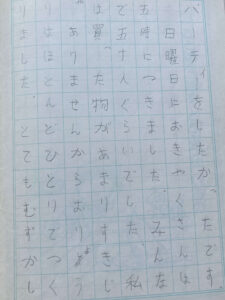 パーティをしたかったです
日曜日におきゃくさんは
五時につきました。みんな
で五十にんぐらいでした。私
は買た物があまりすきじ
ゃありませんから
りはほとんどひとりでつく
りました。とてもむずかし